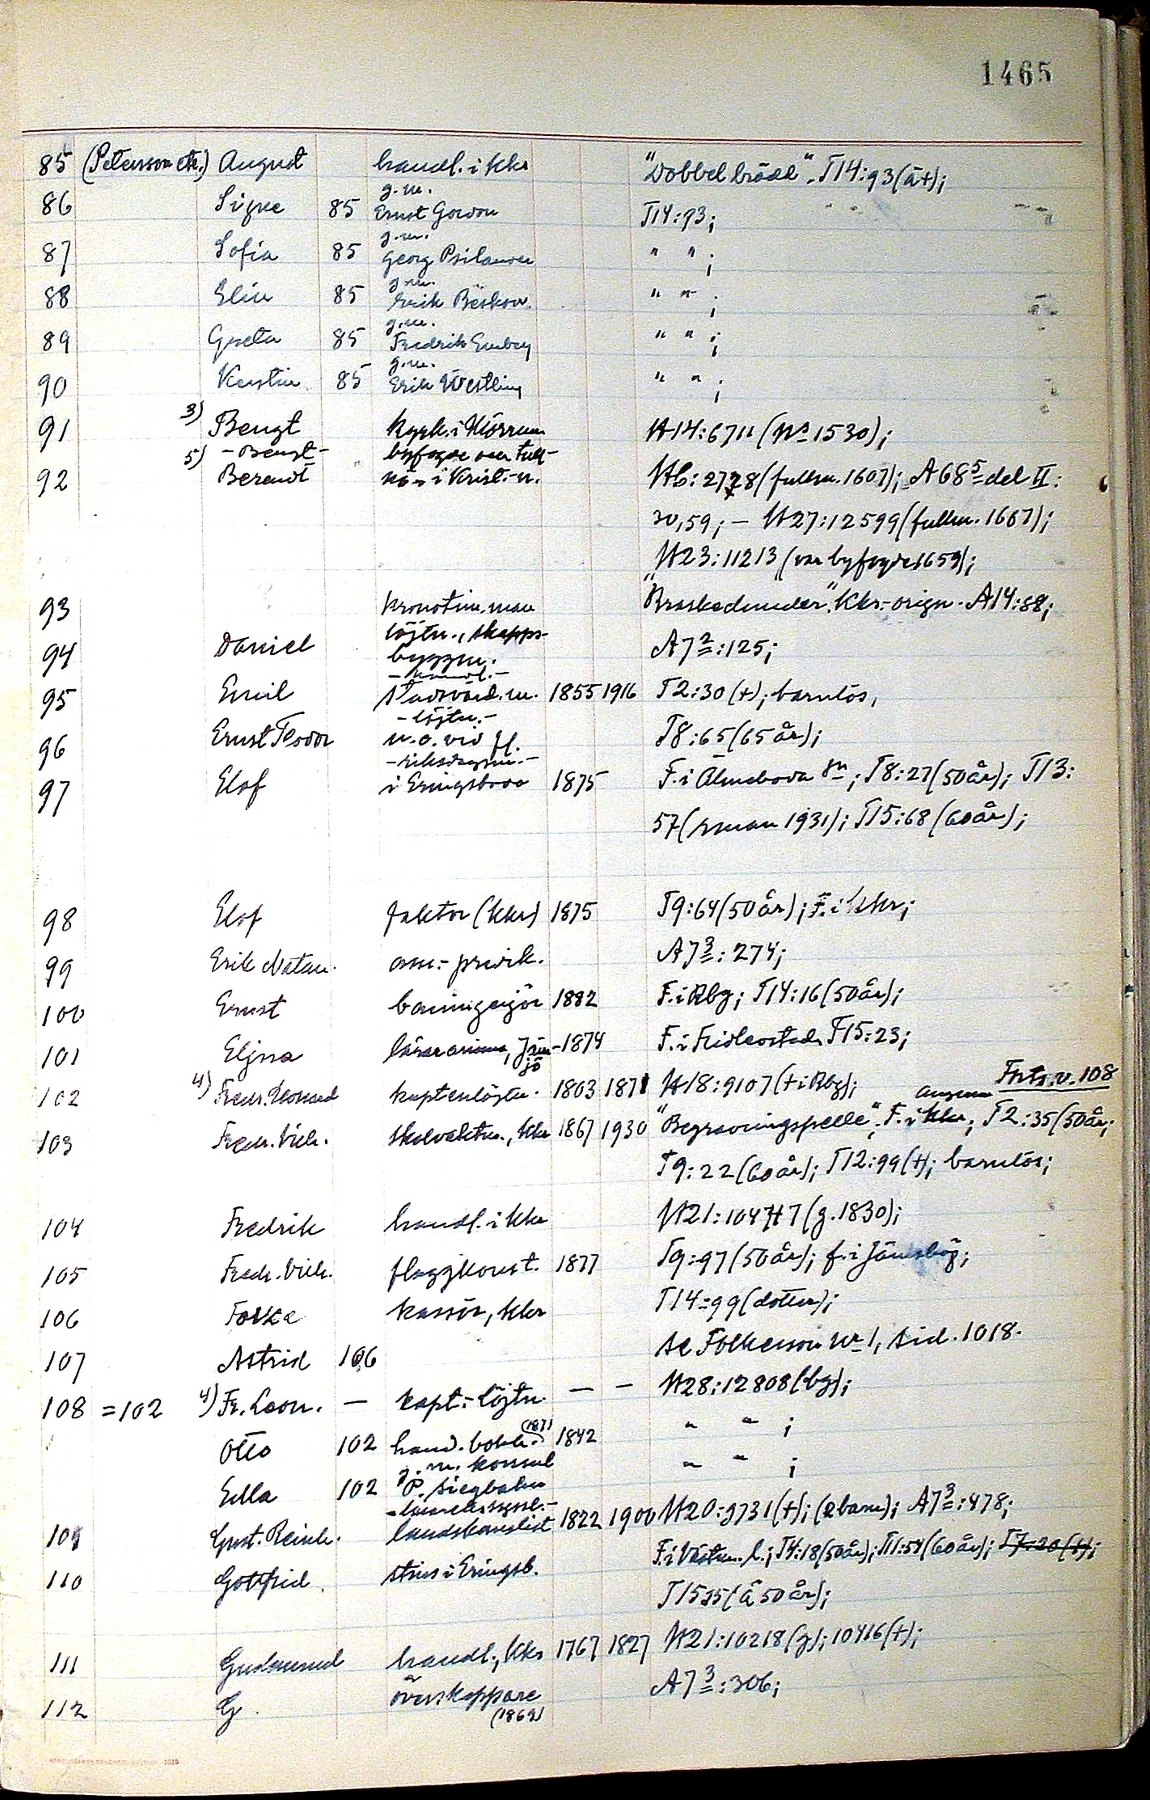 1465
85 (Petersson etc.) August handl. i Kkr "Dobbel brödd". T14:93 (ä+);
g.m.
86 Signe 85 Ernst Gordon T14:93;
g.m.
87 Sofia 85 Georg Psilander " " ;
g.m.
88 Elin 85 Erik Beskow. " " ;
g.m.
89 Greta 85 Fredrik " " ;
g.m.
90 Kerstin 85 Erik Westling " " ;
91 3) Bengt kyrk. i Mörrum H14:6711 (No 1530);
- Bengt - byfogde
92 5) Berendt i Krist.-n. Hb: 2728 (fullm. 1607); A 68 5 del II:
30,59; - H27:12599 (fullm. 1667);
H23:11213 (var byfogde 1659);
93 kronotim.man Kkr-orign. A14:88;
löjtn., skepps-
94 Daniel byggm. A7 2:125;
95 Emil 1855 1916 T2:30 (+); barnlös,
- löjtn. -
96 Ernst Teodor u.o. vid fl. T8:65 (65 år);
- riksdagsm. -
97 Elof i Eringsboda 1875 F. i Älmeboda sn; T8:27 (50 år); T13:
57 (rman 1931); T15:68 (60 år);
98 Elof faktor (Kkr) 1875 T9:64 (50 år); F. i Kkr;
99 Erik Natan. A7 3: 274;
100 Ernst baningenjör 1882 F. i Rbg; T14:16 (50 år);
101 Eljna lärarinna, Jäm- 1874 F. i Fridlevstad T15:23;
jö
102 4) Fredr. Leonard kaptenlöjtn. 1803 1871 H18:9107 (+ i Rbg); Forts. v. 108
103 Fredr. Vilh. skolvaktm., Kkr 1867 1930 "Begravningspelle"; F. i Kkr; T2:35 (50 år;
T9:22 (60 år); T12:99 (+); barnlös;
104 Fredrik handl. i Kkr H21:10447 (g. 1830);
105 Fredr. Vilh. flaggkonst. 1877 T9:97 (50 år); f. i Jämshög;
106 Folke kassör, Kkr T14:99 (dotter);
107 Astrid 106 se Folkerson nr 1, sid. 1018.
108 = 102 4) Fr. Leon. — kapt.-löjtn. — — H28:12808 (bg);
(1871)
Otto 102 hand. bokh. 1842 " " ;
g. m. konsul
Ella 102 P. Siegbahn " " ;
109 Gust. Reinh. landskanslist 1822 1900 H20:9731 (+); (2 barn); A7 3:478;
110 Gottfrid. i Eringsb. F. i Västm. l.; T4:18 (50 år); T11:54 (60 år); T7:20 (+);
T15:35 (å 50 år);
111 Gudmund handl., Kkr 1767 1827 H21:10218 (g); 10416 (+);
112 G. överskeppare A7 3:306;
(1869)